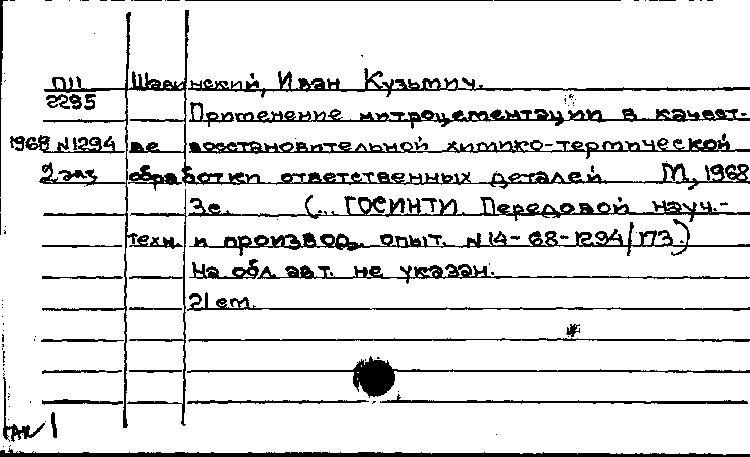 П11 Шавинский, Иван Кузьмич.
2295 Применение нитроцементации в качест-
1968 N1294 ве восстановительной химико-термической
2 экз обработки ответственных деталей. М, 1968
3с. (... ГОСИНТИ. Передовой науч.-
техн. и производ. опыт. N14-68-1294/173)
На обл. авт. не указан.
21 cm.
1